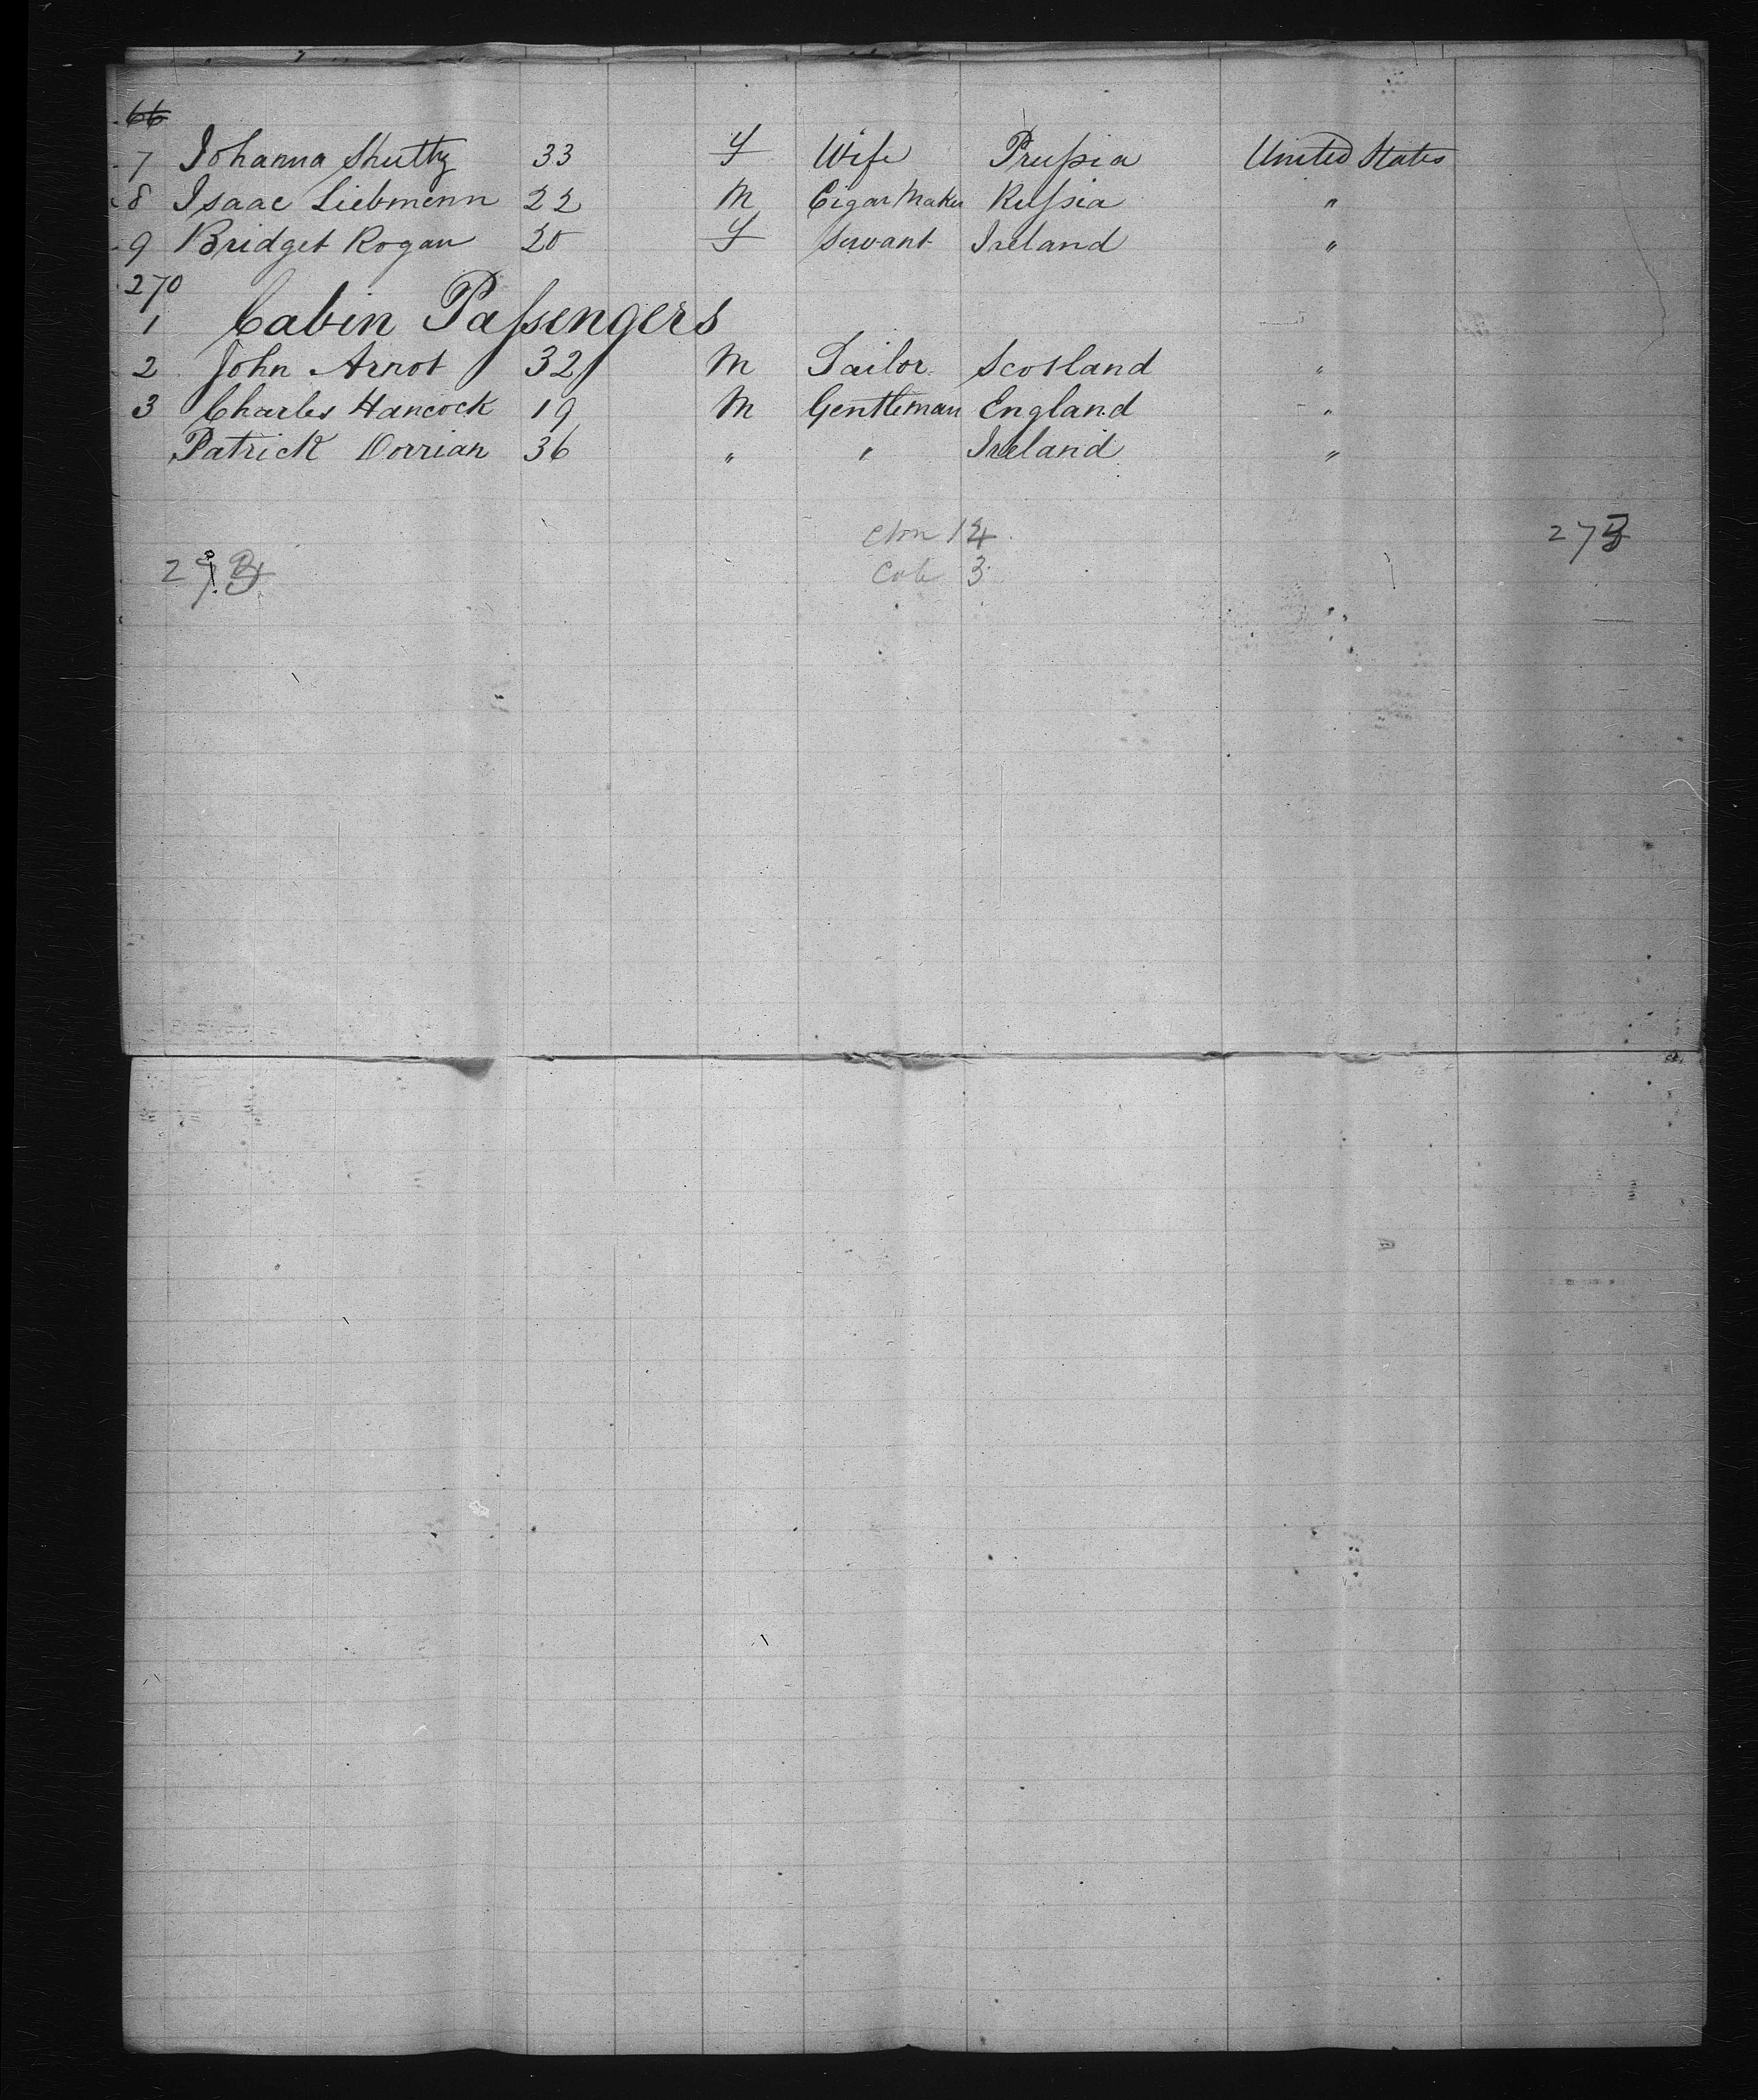 66
7 Johanna Shultz 33 F Wife Prussia United States
8 Isaac Liebmenn 22 M Cigar Maker Russia "
9 Bridget Rogan 20 F Servant Ireland "
270
1 Cabin Passengers
2 John Arnot 32 M Tailor Scotland "
3 Charles Hancock 19 M Gentleman England "
Patrick Dorrian 36 " " Ireland "